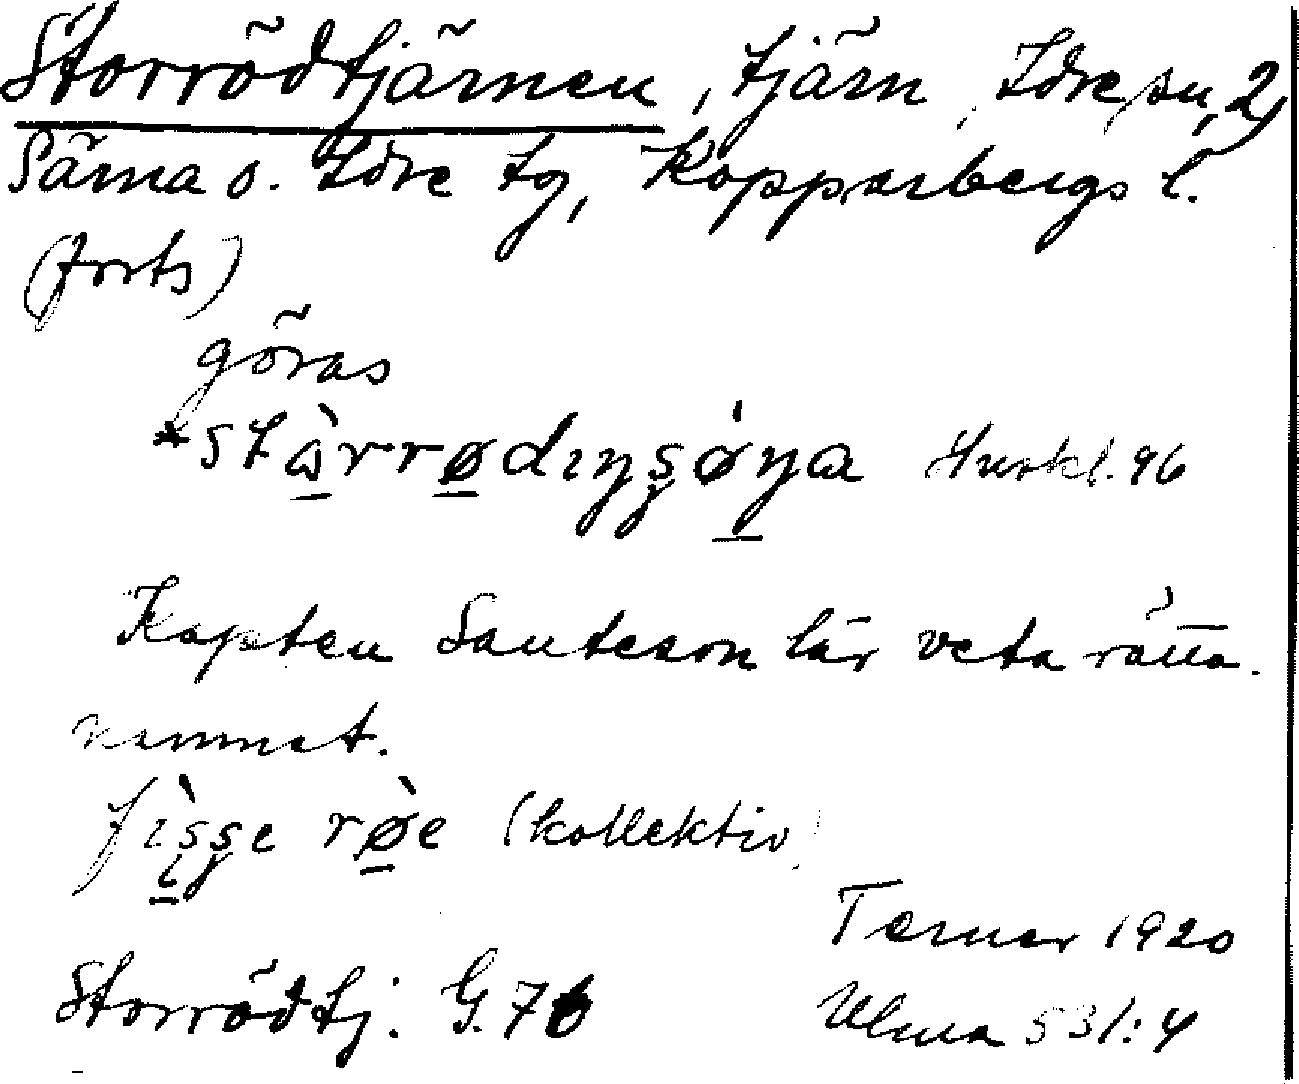 Storrödtjärnen, tjärn, Idre sn, 2,
Särna o. Idre tg, Kopparbergs l.
(forts)
göras
Huskl. 96
Kapten Santeson lär veta rätta
namnet.
røe (kollektiv)
Terner 1920
Storrödtj. G. 76
Ulma 531:4